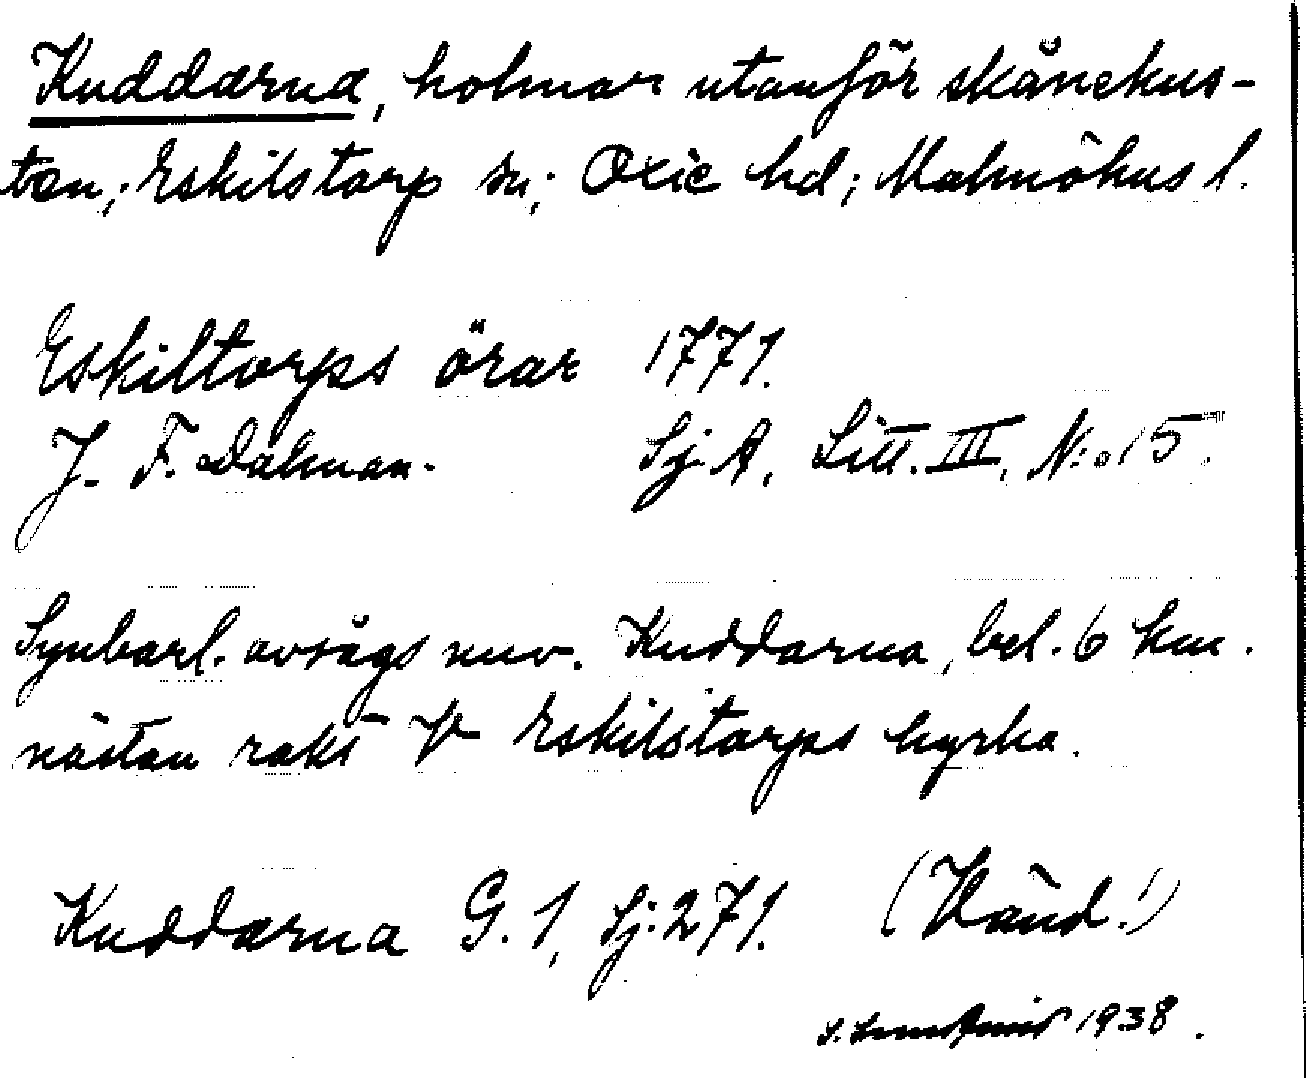 Kuddarna, holmar utanför skånekus-
ten; Eskilstorp sn; Oxie hd; Malmöhus l.
Eskiltorps örar 1771.
J. F. Dalman. Sj. A, Litt. III, N:o 15.
Synbarl. avsågs nuv. Kuddarna, bel. 6 km.
nästan rakt V Eskilstorps kyrka.
Kuddarna G. 1, Sj. 271. (Vänd!)
S. 1938.